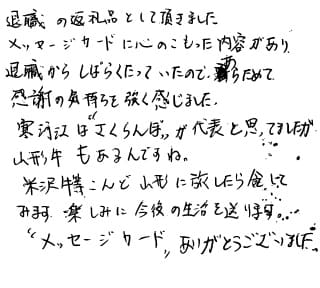 退職の返礼品として頂きました
メッセージカードに心のこもった内容があり
退職からしばらくたっていたので、あらためて
感謝の気持ちを強く感じました。
寒河江は"さくらんぼ"が代表と思ってましたが
山形牛もあるんですね。
米沢牛等こんど山形に旅したら食して
みます 楽しみに今後の生活を送ります。...
"メッセージカード"ありがとうございました